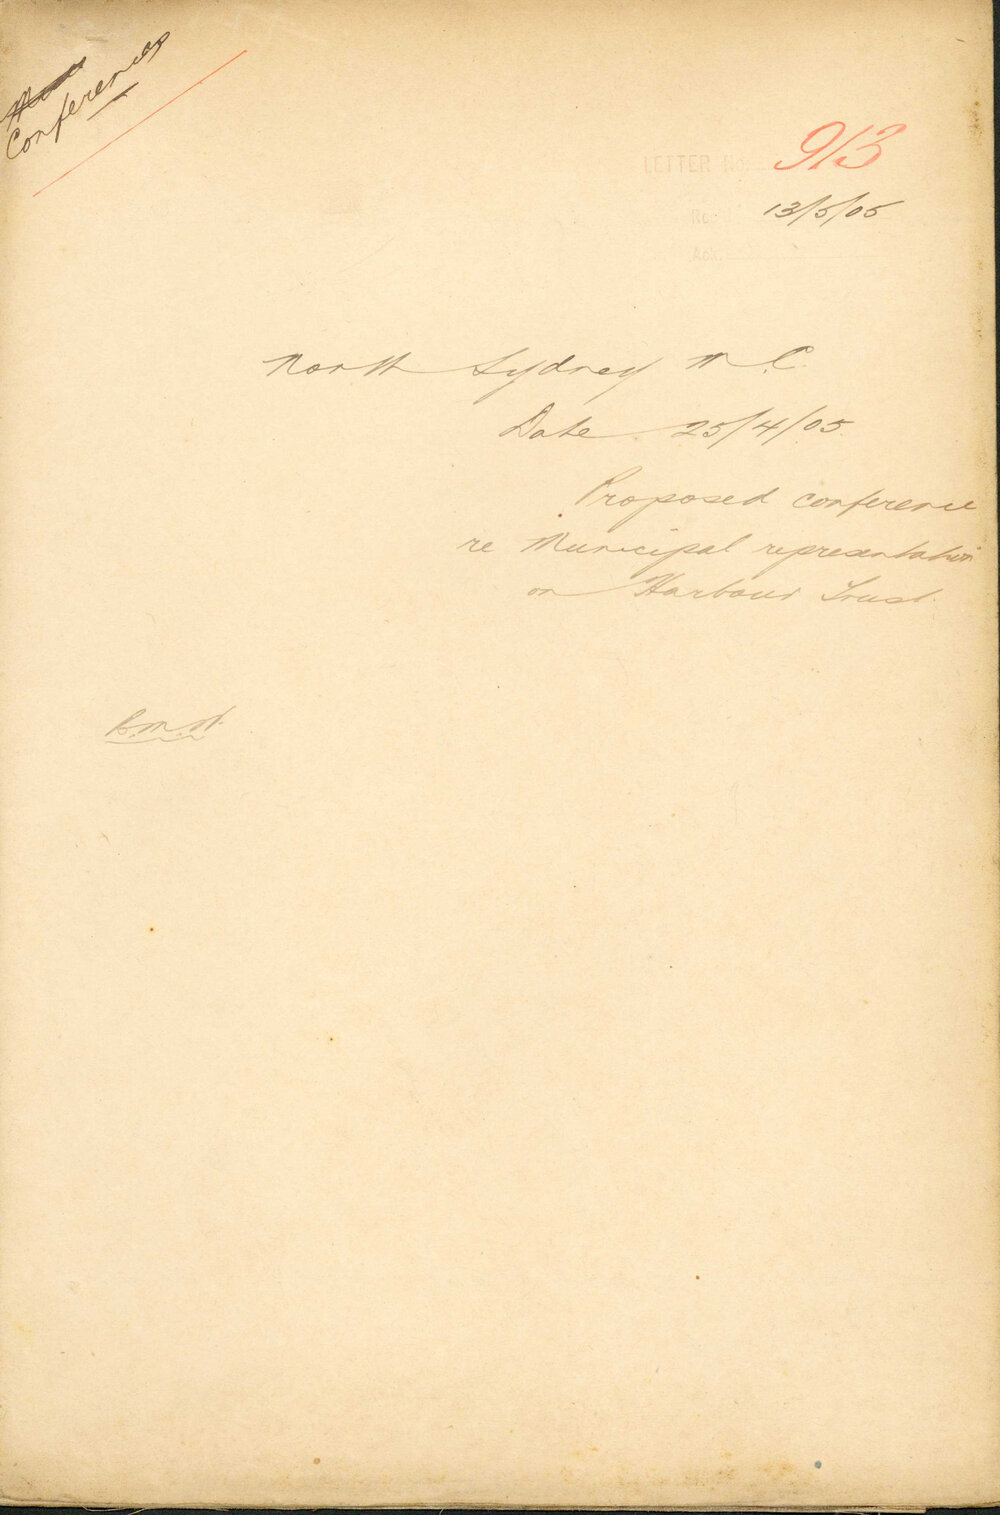 Conferences
LETTER No. 913
Rec 13/5/05
Ack.
North Sydney M.C.
Date 25/4/05
Proposed conference
re Municipal representation
on Harbour Trust.